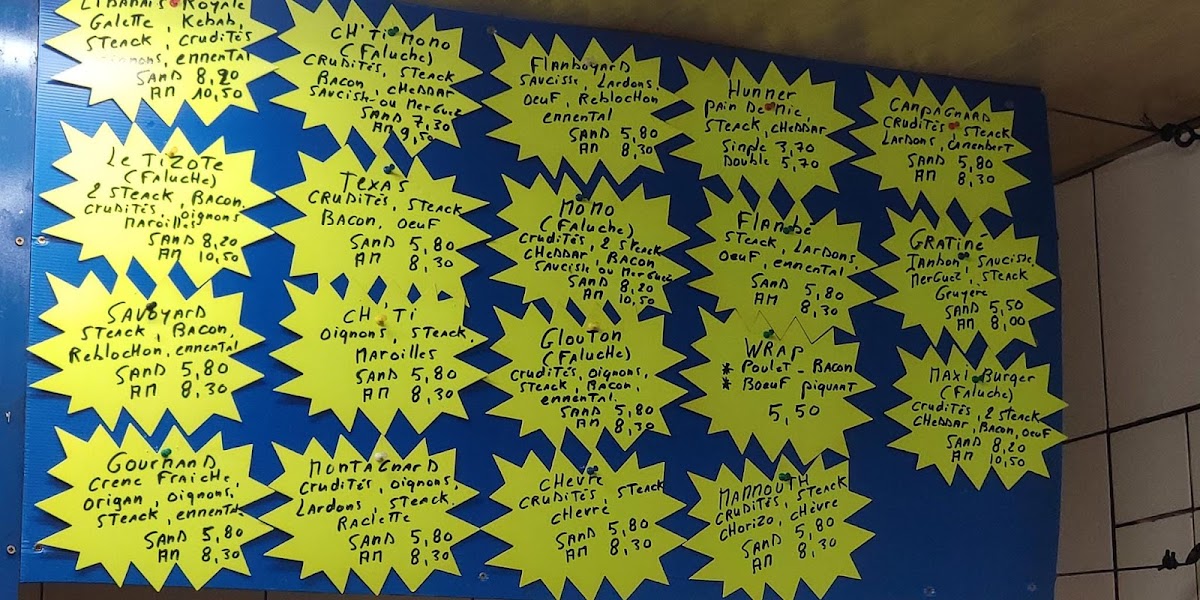 Libanais Royale
Galette, Kebab,
Steack, crudités
oignons, emmental
SAND 8,20
AM 10,50
CH'Ti MOMO
(Faluche)
CRUDITÉS, STEACK
BACON, CHEDDAR
Saucisse ou Merguez
SAND 7,30
AM 9,50
Flamboyard
Saucisse, Lardons,
Oeuf, Reblochon
emmental
SAND 5,80
AM 8,30
Hummer
PAIN De Mie,
STEACK, CHEDDAR
Simple 3,70
Double 5,70
CAMPAGNARD
CRUDITÉS, STEACK
Lardons, Camembert
SAND 5,80
AM 8,30
Le TIZOTE
(Faluche)
2 STEACK, BACON,
CRUDITÉS, oignons
Maroilles
SAND 8,20
AM 10,50
TEXAS
CRUDITÉS, STEACK
BACON, OEUF
SAND 5,80
AM 8,30
MOMO
(Faluche)
Crudités, 2 STEACK
CHEDDAR, BACON
Saucisse ou Merguez
SAND 8,20
AM 10,50
Flambé
STEACK, Lardons,
Oeuf, emmental
SAND 5,80
AM 8,30
GRATINÉ
Jambon, Saucisse,
Merguez, STEACK
Gruyère
SAND 5,50
AM 8,00
SAVOYARD
STEACK, BACON,
Reblochon, emmental
SAND 5,80
AM 8,30
CH'Ti
Oignons, STEACK,
Maroilles
SAND 5,80
AM 8,30
Glouton
(Faluche)
crudités, oignons,
STEACK, BACON,
emmental
SAND 5,80
AM 8,30
WRAP
* Poulet - Bacon
* Boeuf piquant
5,50
MAXI Burger
(Faluche)
Crudités, 2 STEACK
CHEDDAR, BACON, OEUF
SAND 8,20
AM 10,50
Gourmand
Creme Fraiche,
Origan, oignons,
STEACK, emmental
SAND 5,80
AM 8,30
MONTAGNARD
Crudités, oignons,
Lardons, STEACK,
Raclette
SAND 5,80
AM 8,30
CHEVRE
CRUDITÉS, STEACK
CHEVRE
SAND 5,80
AM 8,30
MAMMOUTH
CRUDITÉS, STEACK
CHORIZO, CHÈVRE
SAND 5,80
AM 8,30